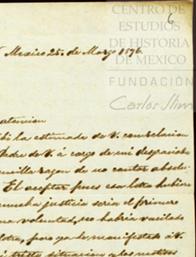 CENTRO DE
ESTUDIOS
DE HISTORIA
DE MEXICO
FUNDACIÓN
Carlos Slim
6
Mexico 25 de Marzo 1876
atencion
di la estimada de V. con relacion
Padre de V. á cargo de mi despacho
sencilla razon de no contar absolu
El aceptar pues esa letra hubie
mucha justicia seria el primero
voluntad, no habria vacilado
letra, pero ya le manifesté á V.
situacion á los